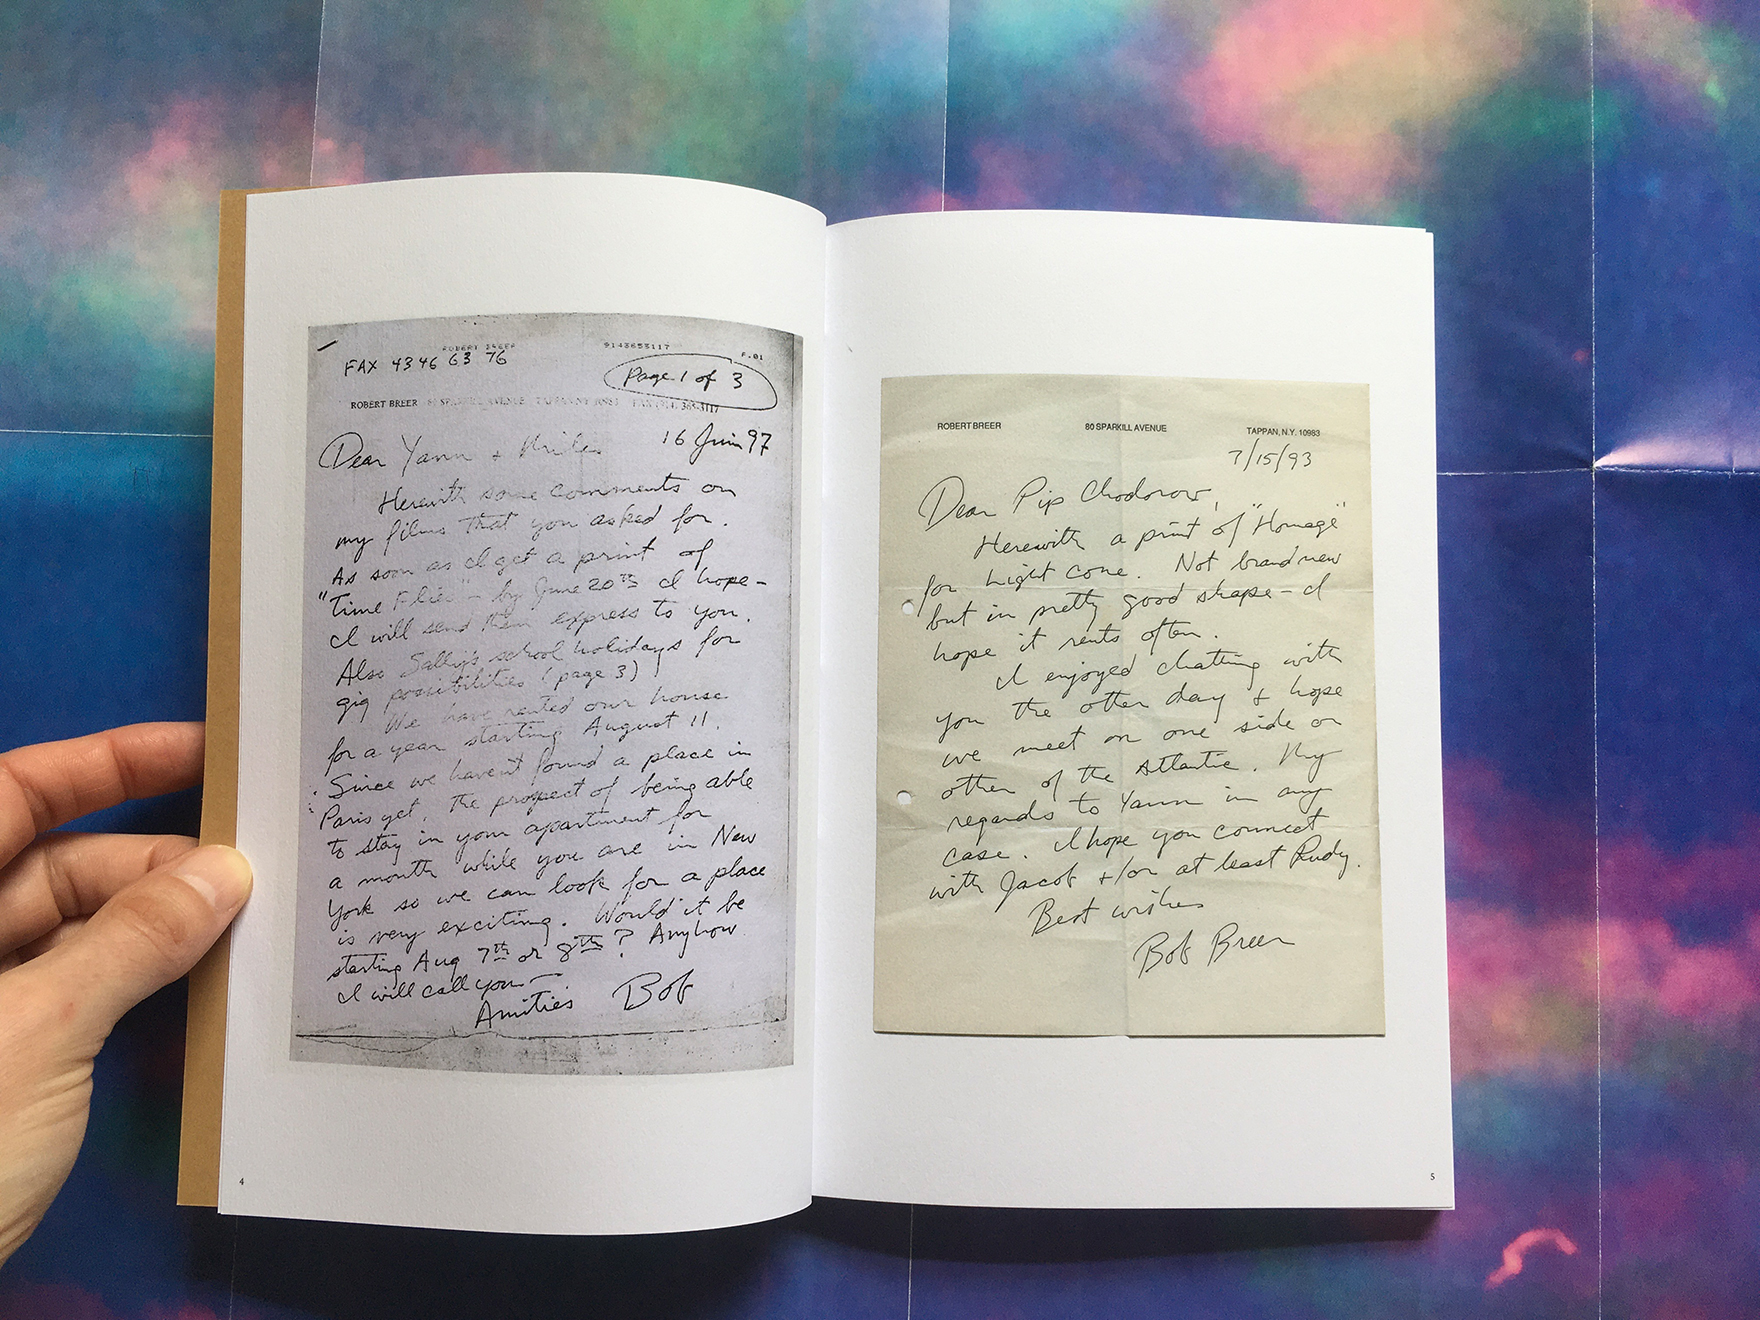 ROBERT BREER 9143653117 P.01
FAX 43 46 63 76
Page 1 of 3
ROBERT BREER 80 SPARKILL AVENUE TAPPAN NY 10983 FAX (914) 365-3117
16 Juin 97
Dear Yann +
Herewith some comments on
my films that you asked for.
As soon as I get a print of
"Time Flies" - by June 20th I hope -
I will send them express to you.
Also Sally's school holidays for
gig possibilities (page 3)
We have rented our house
for a year starting August 11.
Since we haven't found a place in
Paris yet, the prospect of being able
to stay in your apartment for
a month while you are in New
York so we can look for a place
is very exciting. Would it be
starting Aug 7th or 8th? Anyhow
I will call you —
Amitiés Bob
4
ROBERT BREER 80 SPARKILL AVENUE TAPPAN, N.Y. 10983
7/15/93
Dear Pip Chodorow,
Herewith a print of "Homage"
for Light Cone. Not brand new
but in pretty good shape - I
hope it rents often.
I enjoyed chatting with
you the other day & hope
we meet on one side or
other of the Atlantic. My
regards to Yann in any
case. I hope you connect
with Jacob +/or at least Rudy.
Best wishes
Bob Breer
5